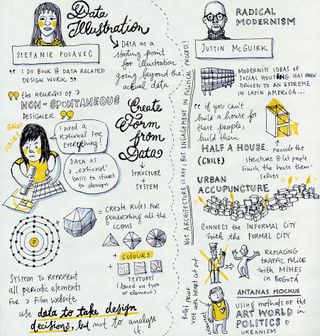 Data
Illustration
STEFANIE POSAVEC
I DO BOOK & DATA RELATED
DESIGN WORK
→ DATA AS A
starting point
for illustration
going beyond the
actual data
"THE NEUROSIS OF A
NON-SPONTANEOUS
DESIGNER"
I need a
RATIONAL FOR
EVERYthing!
DATA AS
A 'rational'
basis to start
to design
Create
Form
from
Data
STRUCTURE
SYSTEM
CREATE RULES FOR
GENERATING all THE
ICONS
COLOURS
TEXTURES
(based on type
of element)
SYSTEM TO REPRESENT
all periodic elements
FOR a Film website
use data to take design
decisions, but not to analyse
it
RADICAL
MODERNISM
JUSTIN McGUIRK
MODERNIST IDEAS OF
SOCIAL HOUSING HAS BEEN
DRIVEN TO AN EXTREME
IN LATIN AMERICA...
"If you can't
build a house for
these people,
build them
HALF A HOUSE
(CHILE)
Provide the
structure & let people
finish the house them-
selves
URBAN
ACCUPUNCTURE
CONNECT THE INFORMAL CITY
With the FORMAL CITY
REPLACING
TRAFFIC POLICE
WITH MIMES
IN BOGOTÁ
ANTANAS MOCKUS
Using methods of the
ART WORLD IN
POLITICS &
URBANISM
NOT ARCHITECTURE
BUT ENGAGEMENT IN POLITICAL PROCESS!